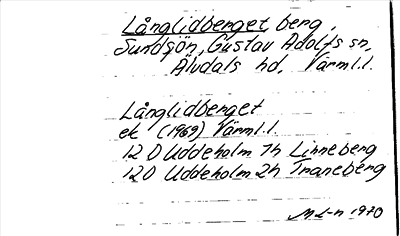 Långlidberget berg,
Sundsjön, Gustav Adolfs sn,
Älvdals hd, Värml.l.
Långlidberget
ek (1969) Värml.l.
12 D Uddeholm 1h Linneberg
12 D Uddeholm 2h Traneberg
M L-n 1970